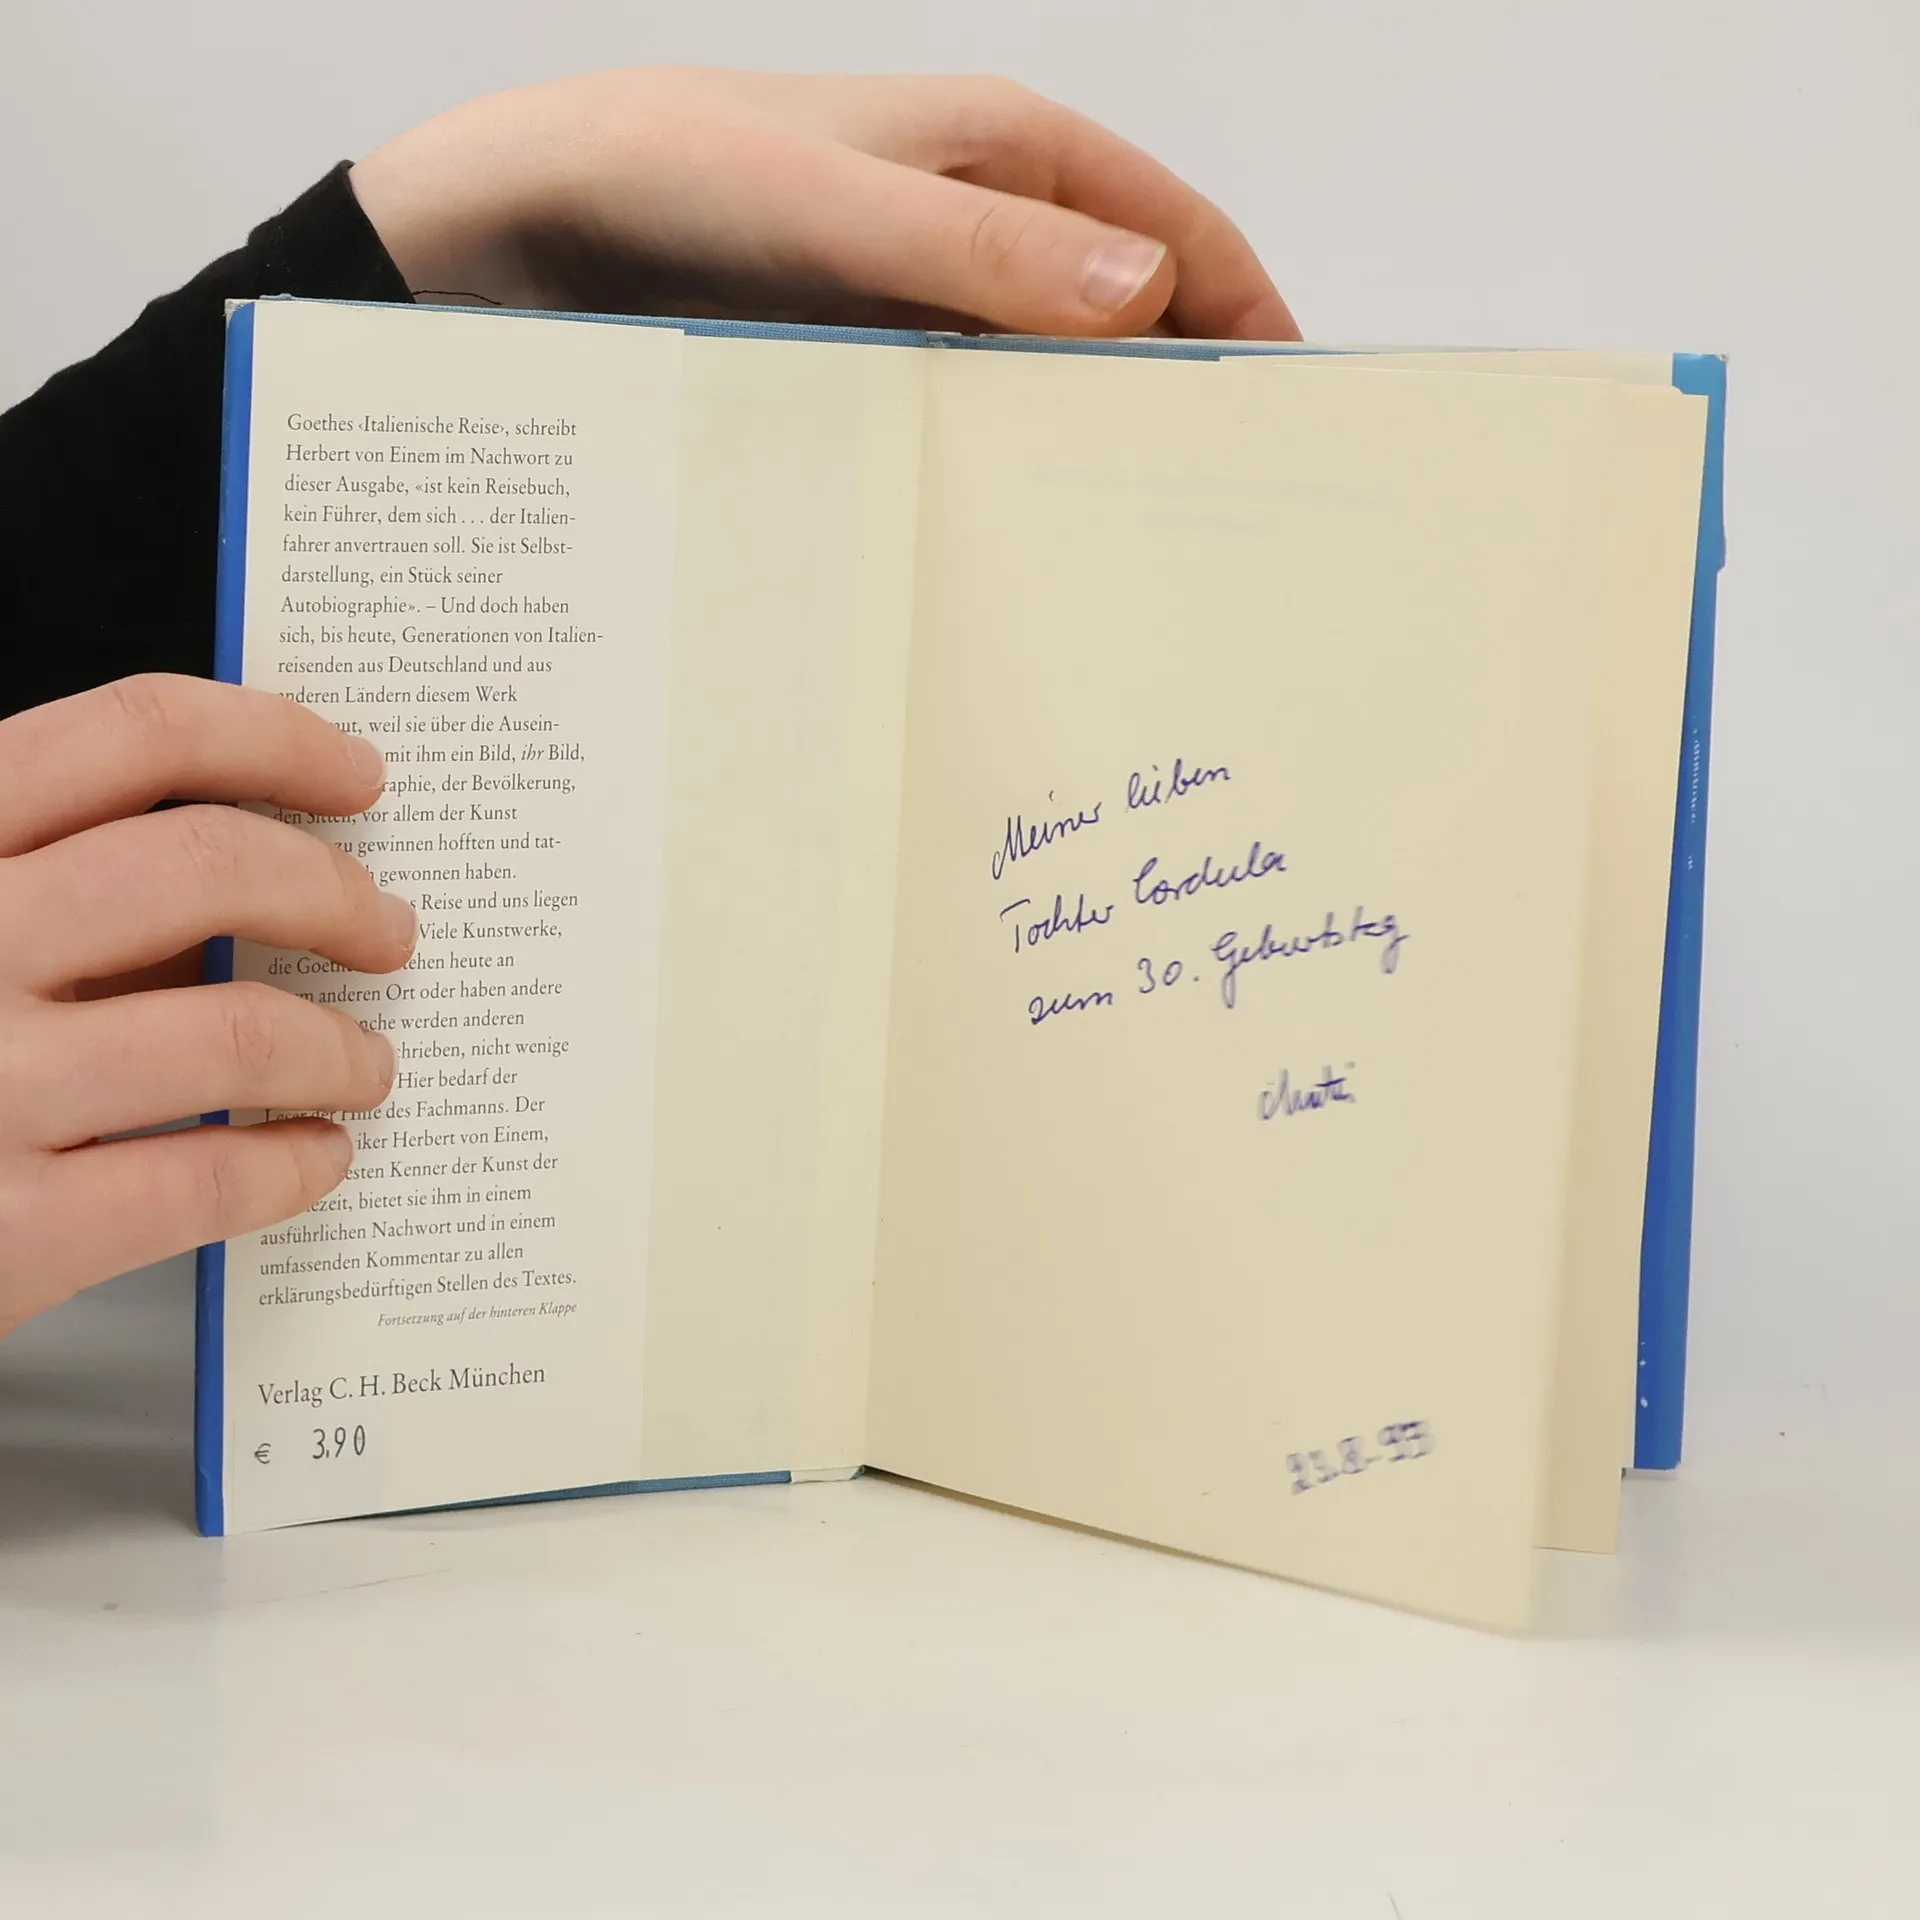 Goethes ‹Italienische Reise›, schreibt
Herbert von Einem im Nachwort zu
dieser Ausgabe, «ist kein Reisebuch,
kein Führer, dem sich . . . der Italien-
fahrer anvertrauen soll. Sie ist Selbst-
darstellung, ein Stück seiner
Autobiographie». – Und doch haben
sich, bis heute, Generationen von Italien-
reisenden aus Deutschland und aus
anderen Ländern diesem Werk
weil sie über die Ausein-
mit ihm ein Bild, ihr Bild,
der Bevölkerung,
den Sitten, vor allem der Kunst
zu gewinnen hofften und tat-
gewonnen haben.
Reise und uns liegen
Viele Kunstwerke,
die heute an
anderen Ort oder haben andere
werden anderen
nicht wenige
Hier bedarf der
Leser der Hilfe des Fachmanns. Der
Herbert von Einem,
Kenner der Kunst der
bietet sie ihm in einem
ausführlichen Nachwort und in einem
umfassenden Kommentar zu allen
erklärungsbedürftigen Stellen des Textes.
Fortsetzung auf der hinteren Klappe
Verlag C. H. Beck München
€ 3,90
Meiner lieben
Tochter Cordula
zum 30. Geburtstag